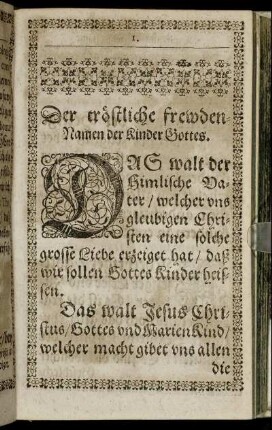 1.
Der tröstliche frewden-
Namen der Kinder Gottes.
DAS walt der
Himlische Va-
ter / welcher vns
gleubigen Chri-
sten eine solche
grosse Liebe erzeiget hat / daß
wir sollen Gottes Kinder heis-
sen.
Das walt Jesus Chri-
stus, Gottes vnd Marien Kind /
welcher macht gibet vns allen
die